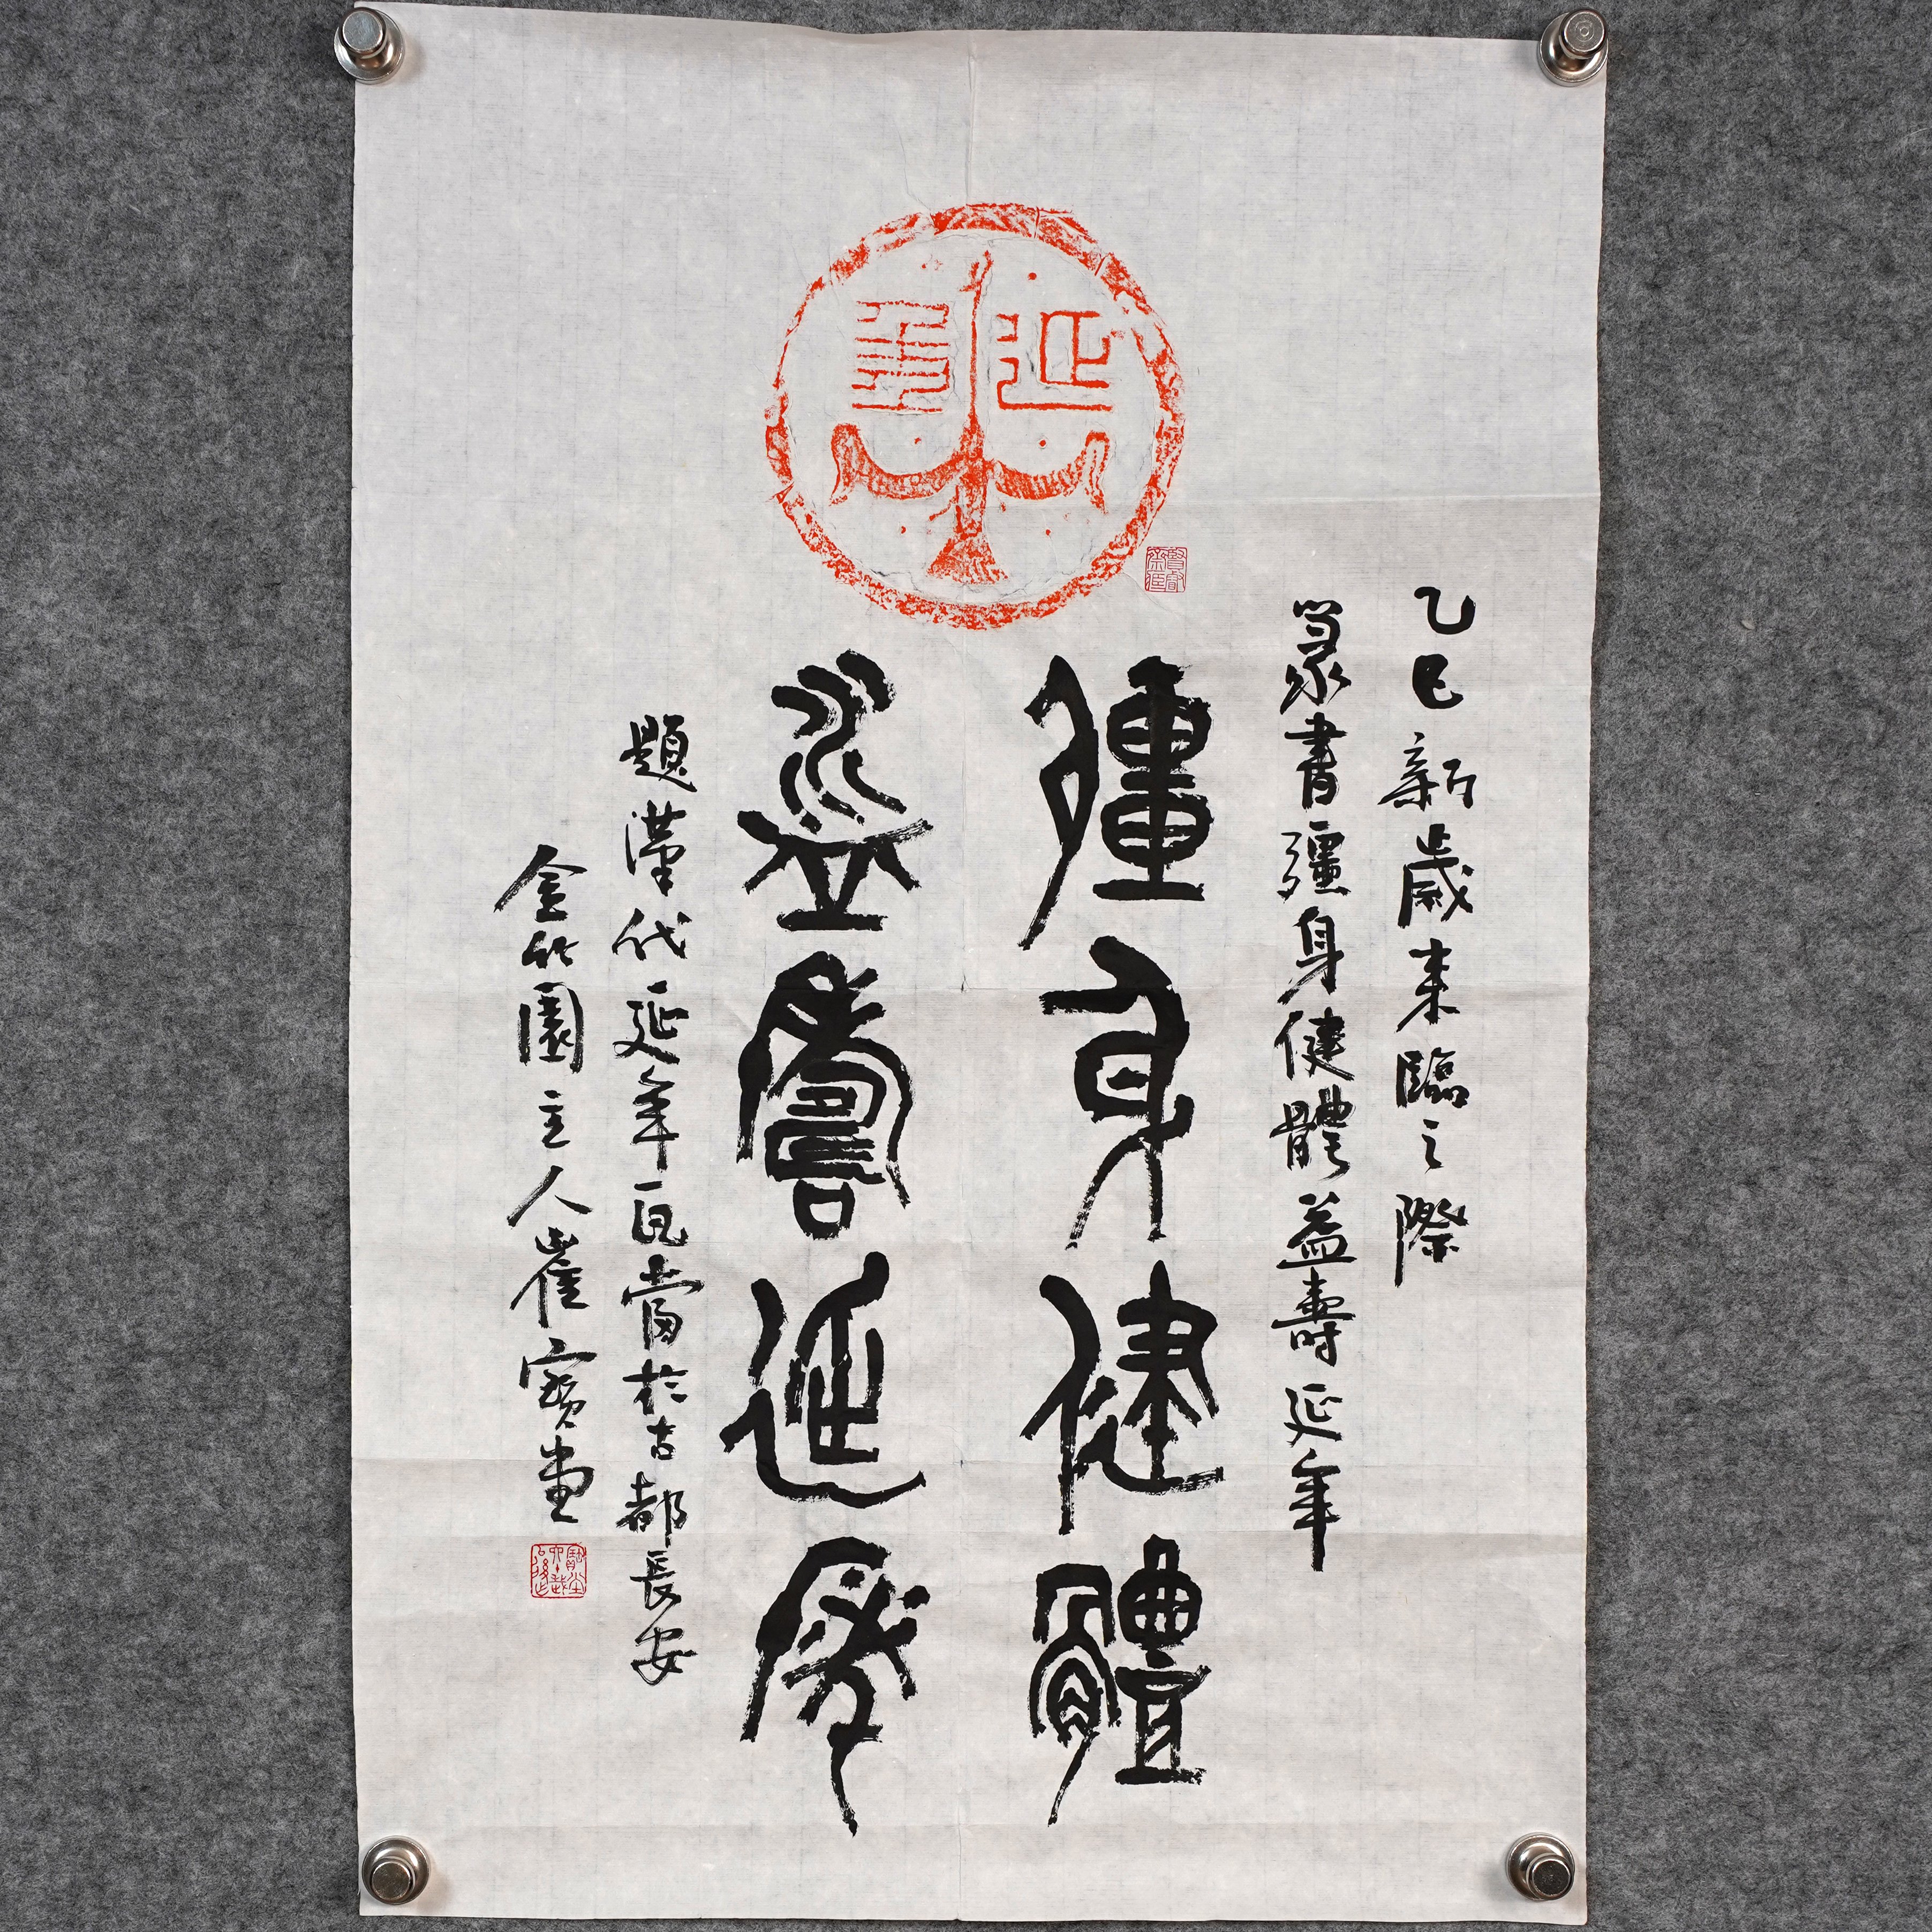 延年
乙巳新歲来臨之際
篆書彊身健體益壽延年
彊身健體
益壽延年
題漢代延年瓦當於古都長安
金竹園主人崔寶堂